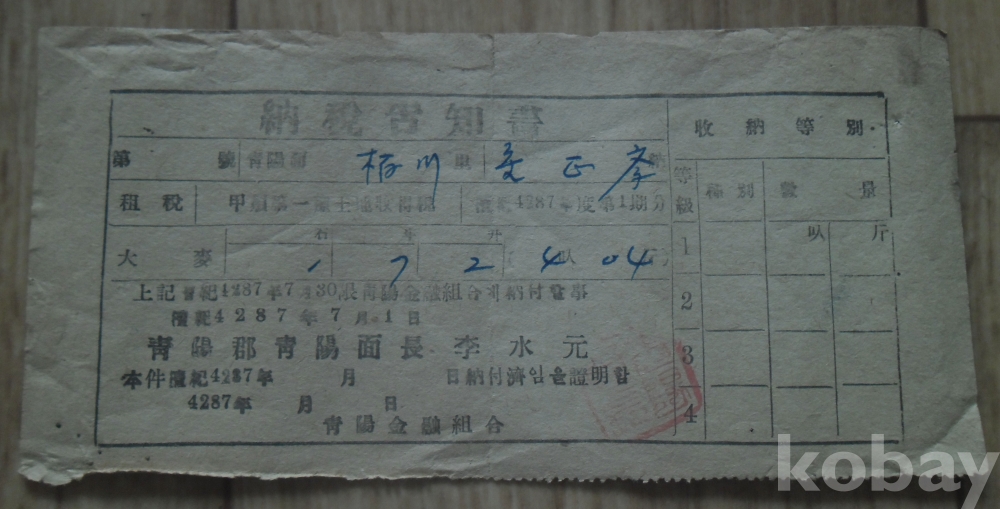 納稅告知書
第 號 靑陽面 里
租稅 甲類第一種土地收得稅 檀紀4287年度第1期分
石 斗 升
大麥 1 7 2 4 叺 04
上記檀紀4287年7月30限靑陽金融組合에納付할事
檀紀4287年7月1日
靑陽郡靑陽面長李水元
本件檀紀4287年 月 日納付濟임을證明함
4287年 月 日
靑陽金融組合
收納等別
等級 種別 數量
1 叺 斤
2
3
4
kobay